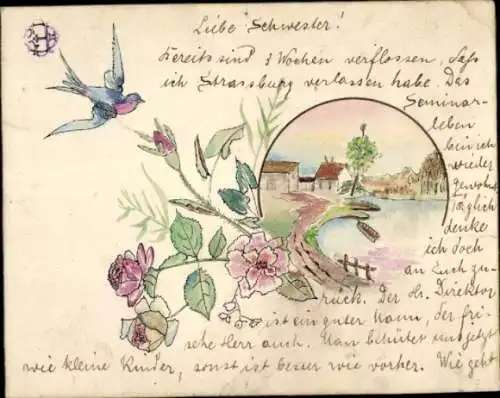 Liebe Schwester!
Bereits sind 3 Wochen verflossen, dass
ich Strassburg verlassen habe. Das
Seminar-
leben
bin ich
wieder
gewohnt
Täglich
denke
ich doch
an Euch zu-
rück. Der Hr. Direktor
ist ein guter Mann, der fri-
sche Herr auch. Man behütet uns jetzt
wie kleine Kinder, sonst ist besser wie vorher. Wie geht